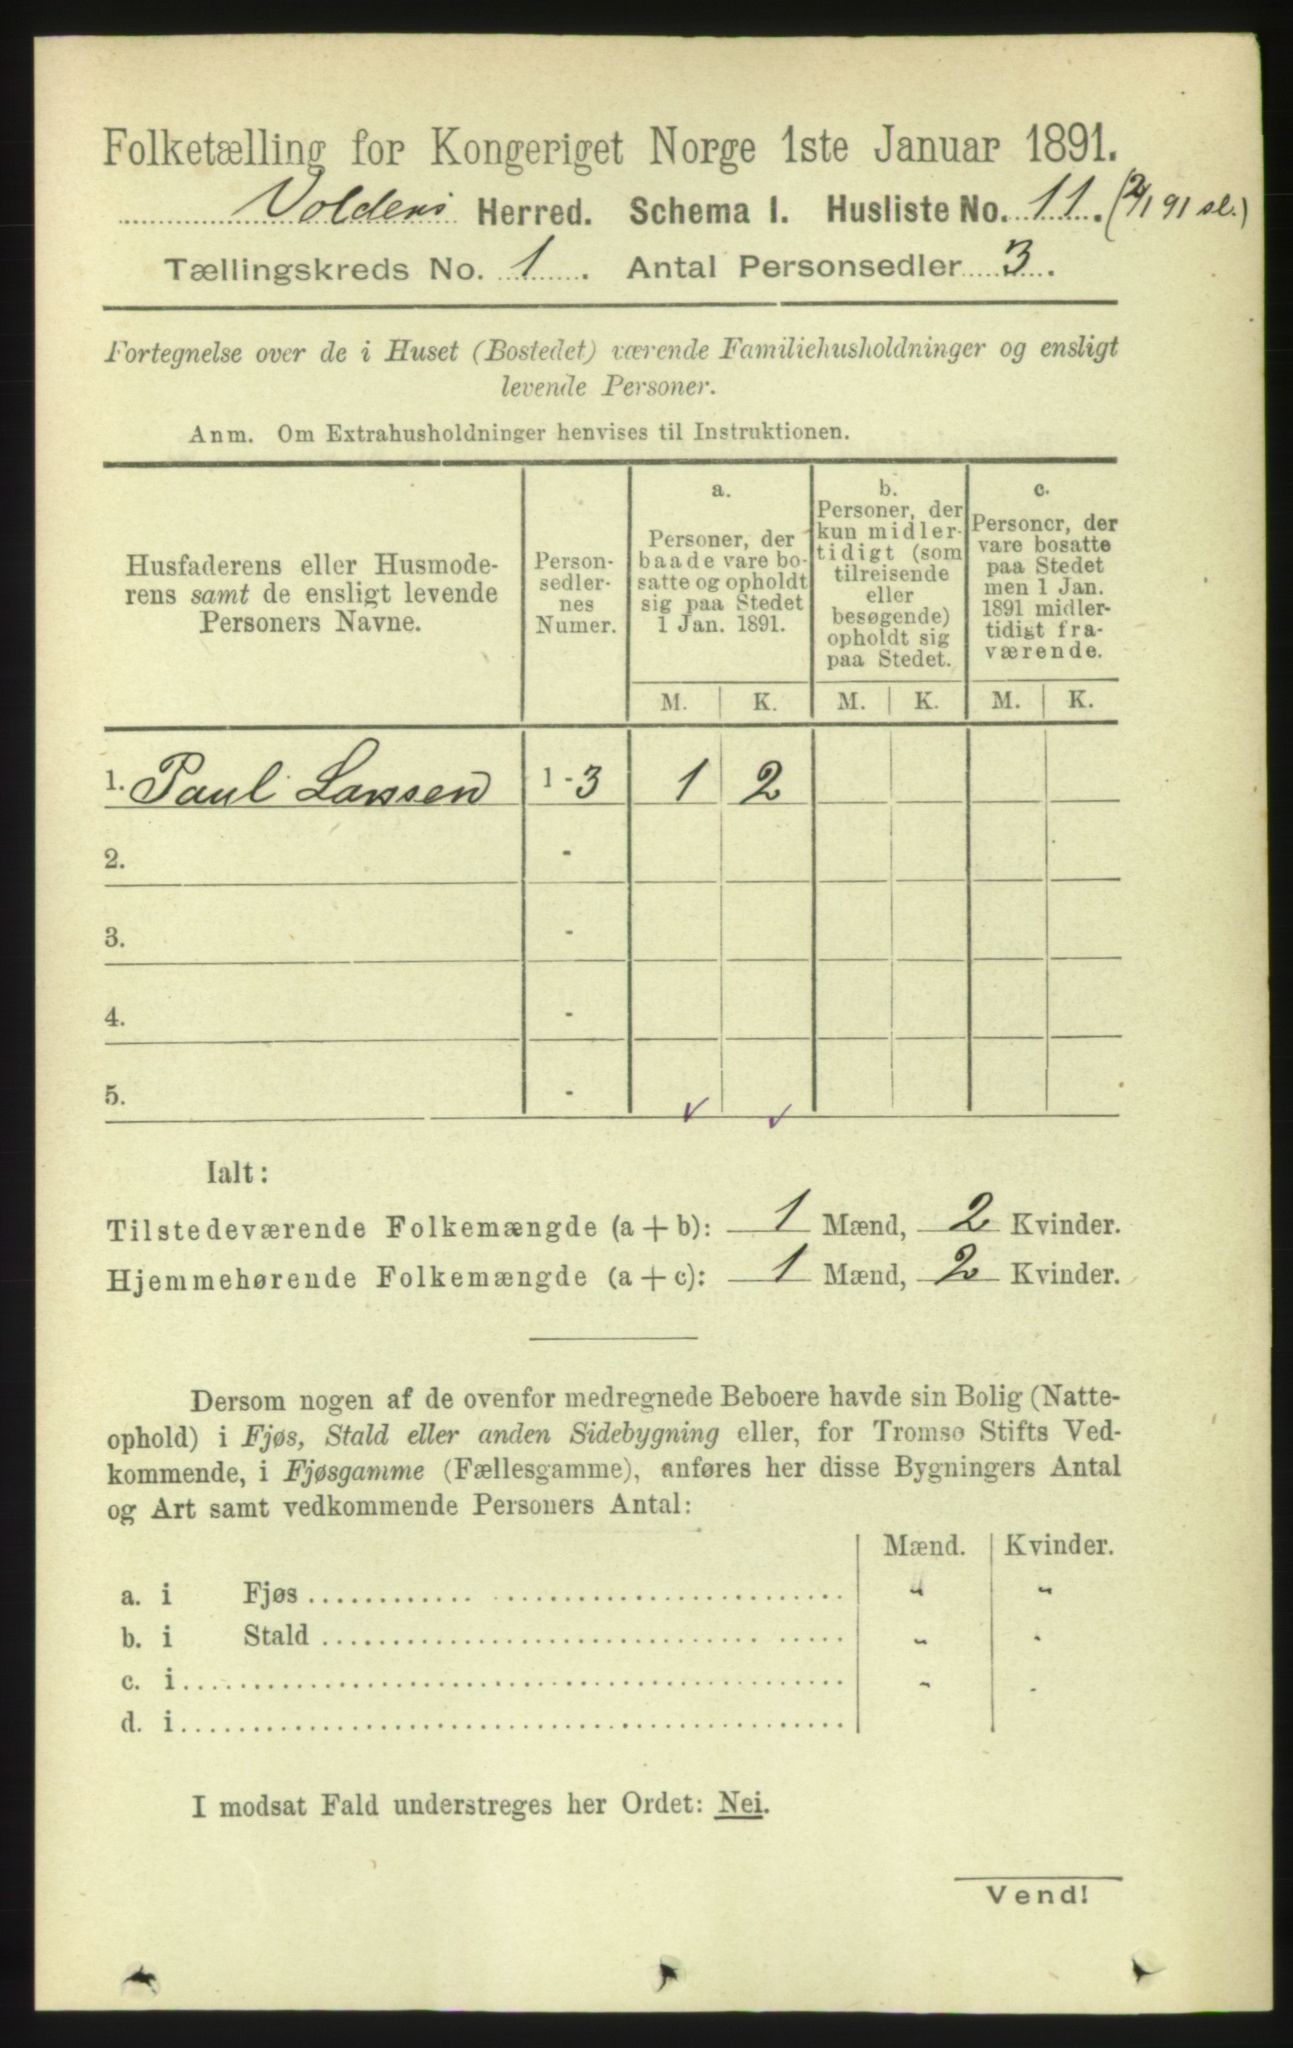 Folketælling for Kongeriget Norge 1ste Januar 1891.
Voldens Herred. Schema I. Husliste No. 11. (2/1 91 sl.)
Tællingskreds No. 1. Antal Personsedler 3.
Fortegnelse over de i Huset (Bostedet) værende Familiehusholdninger og ensligt
levende Personer.
Anm. Om Extrahusholdninger henvises til Instruktionen.
Husfaderens eller Husmode-
rens samt de ensligt levende
Personers Navne.
Person-
sedler-
nes
Numer.
a.
Personer, der
baade vare bo-
satte og opholdt
sig paa Stedet
1 Jan. 1891.
b.
Personer, der
kun midler-
tidigt (som
tilreisende
eller
besøgende)
opholdt sig
paa Stedet.
c.
Personer, der
vare bosatte
paa Stedet
men 1 Jan.
1891 midler-
tidigt fra-
værende.
M. K. M. K. M. K.
1. Paul Larssen 1 - 3 1 2
2. -
3. -
4. -
5. -
Ialt:
Tilstedeværende Folkemængde (a + b): 1 Mænd, 2 Kvinder.
Hjemmehørende Folkemængde (a + c): 1 Mænd, 2 Kvinder.
Dersom nogen af de ovenfor medregnede Beboere havde sin Bolig (Natte-
ophold) i Fjøs, Stald eller anden Sidebygning eller, for Tromsø Stifts Ved-
kommende, i Fjøsgamme (Fællesgamme), anføres her disse Bygningers Antal
og Art samt vedkommende Personers Antal:
Mænd. Kvinder.
a. i Fjøs " "
b. i Stald " "
c. i " "
d. i
I modsat Fald understreges her Ordet: Nei.
Vend!